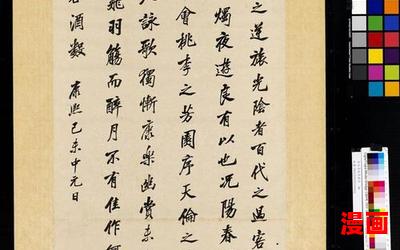 之逆旅光陰者百代之過客
燭夜遊良有以也況陽春
會桃李之芳園序天倫之
詠歌獨慚康樂幽賞未
飛羽觴而醉月不有佳作
酒數 康熙己未中元日
漫画